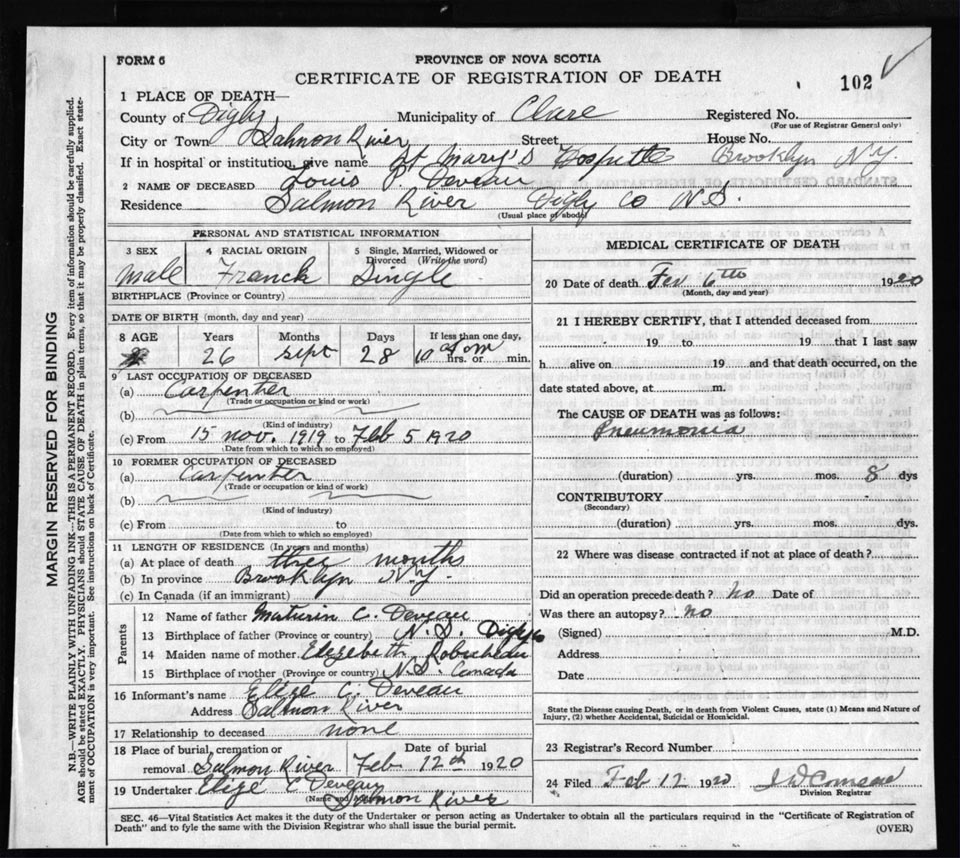 FORM 6
PROVINCE OF NOVA SCOTIA
CERTIFICATE OF REGISTRATION OF DEATH
102
1 PLACE OF DEATH—
County of Digby Municipality of Clare Registered No.
(For use of Registrar General only)
City or Town Salmon River Street House No.
If in hospital or institution, give name St Mary's Brooklyn N.Y.
2 NAME OF DECEASED Louis P. Deveau
Residence Salmon River Digby Co N.S.
(Usual place of abode)
PERSONAL AND STATISTICAL INFORMATION
3 SEX 4 RACIAL ORIGIN 5 Single, Married, Widowed or Divorced (Write the word)
Male Franch Single
BIRTHPLACE (Province or Country)
DATE OF BIRTH (month, day and year)
8 AGE Years Months Days If less than one day,
26 Sept 28 10 hrs. or min.
9 LAST OCCUPATION OF DECEASED
(a) Carpenter
(Trade or occupation or kind or work)
(b)
(Kind of industry)
(c) From 15 Nov. 1919 to Feb 5 1920
(Date from which to which so employed)
10 FORMER OCCUPATION OF DECEASED
(a) Carpenter
(Trade or occupation or kind of work)
(b)
(Kind of industry)
(c) From to
(Date from which to which so employed)
11 LENGTH OF RESIDENCE (In years and months)
(a) At place of death three months
(b) In province Brooklyn N.Y.
(c) In Canada (if an immigrant)
Parents
12 Name of father Maturin C. Deveau
13 Birthplace of father (Province or country) N.S. Digby
14 Maiden name of mother Elizebeth Robicheau
15 Birthplace of mother (Province or country) N.S. Canada
16 Informant's name Elizé C. Deveau
Address Salmon River
17 Relationship to deceased none
18 Place of burial, cremation or removal Salmon River Date of burial Feb 12th 1920
19 Undertaker Elize C Deveau
(Name and
Salmon River
MEDICAL CERTIFICATE OF DEATH
20 Date of death Fev 6th 1920
(Month, day and year)
21 I HEREBY CERTIFY, that I attended deceased from
19 to 19 that I last saw
h alive on 19 and that death occurred, on the
date stated above, at m.
The CAUSE OF DEATH was as follows:
Pneumonia
(duration) yrs. mos. 8 dys
CONTRIBUTORY
(Secondary)
(duration) yrs. mos. dys.
22 Where was disease contracted if not at place of death?
Did an operation precede death? No Date of
Was there an autopsy? No
(Signed) M.D.
Address
Date
State the Disease causing Death, or in death from Violent Causes, state (1) Means and Nature of
Injury, (2) whether Accidental, Suicidal or Homicidal.
23 Registrar's Record Number
24 Filed Feb 12 1920 J W Comeau
Division Registrar
SEC. 46—Vital Statistics Act makes it the duty of the Undertaker or person acting as Undertaker to obtain all the particulars required in the "Certificate of Registration of
Death" and to fyle the same with the Division Registrar who shall issue the burial permit.
(OVER)
MARGIN RESERVED FOR BINDING
N.B.—WRITE PLAINLY WITH UNFADING INK—THIS IS A PERMANENT RECORD. Every item of information should be carefully supplied.
AGE should be stated EXACTLY. PHYSICIANS should STATE CAUSE OF DEATH in plain terms, so that it may be properly classified. Exact state-
ment of OCCUPATION is very important. See instructions on back of Certificate.